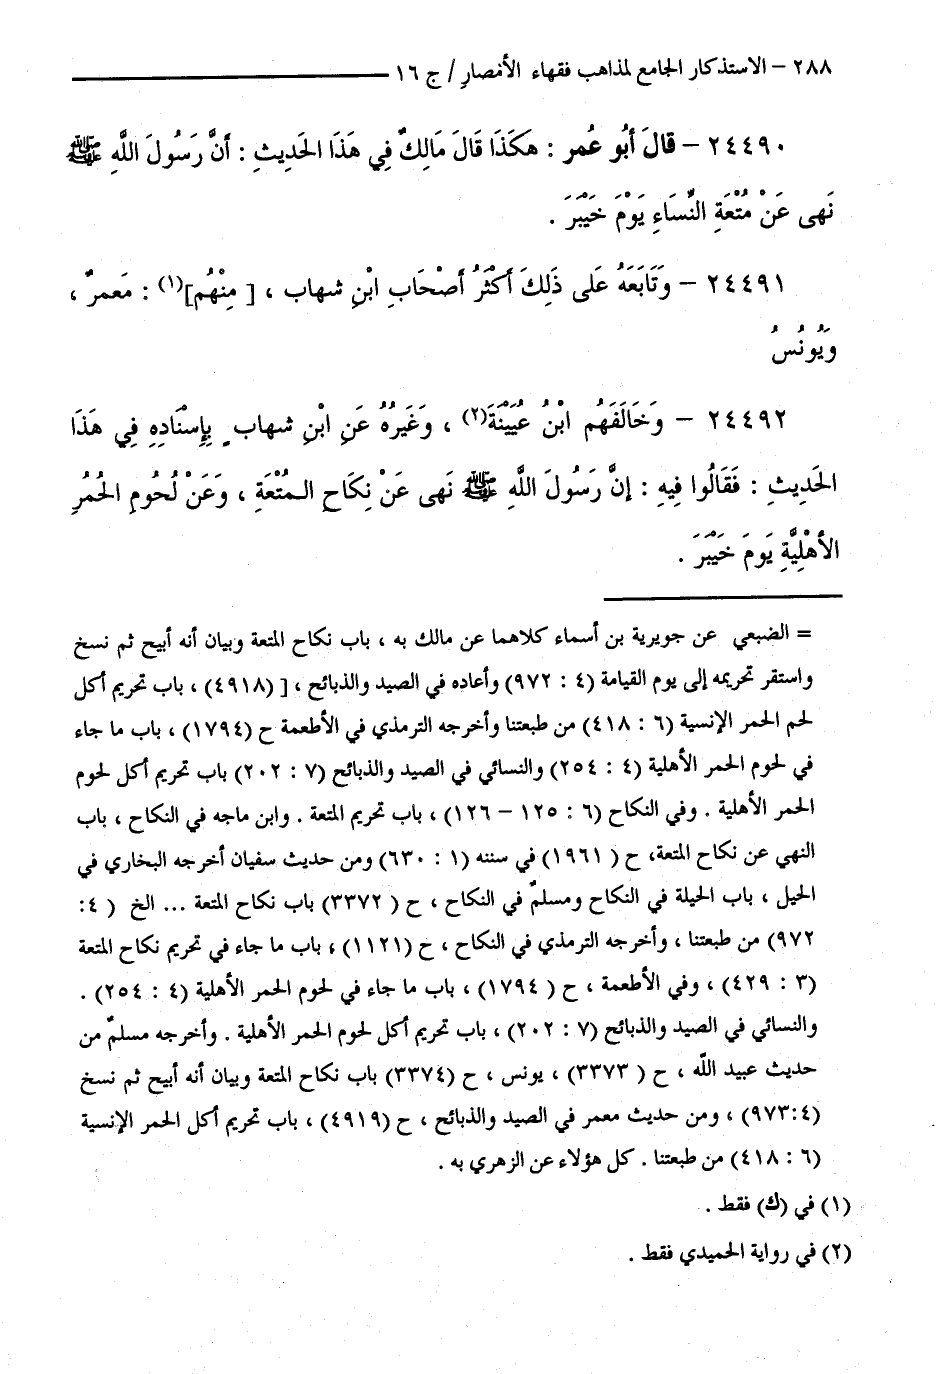 ٢٨٨ – الاستذكار الجامع لمذاهب فقهاء الأمصار / ج ١٦
٢٤٤٩٠ – قالَ أبُو عُمر : هكَذَا قَالَ مَالِكٌ فِي هَذَا الحَدِيثِ : أنَّ رَسُولَ اللَّهِ ﷺ
نَهى عَنْ مُتْعَةِ النِّسَاءِ يَوْمَ خَيْبَرَ .
٢٤٤٩١ – وَتَابَعَهُ عَلى ذَلِكَ أكْثَرُ أصْحَابِ ابْنِ شهاب ، [ مِنْهُم](١) : مَعمرٌ ،
وَيُونُسُ
٢٤٤٩٢ – وَخَالَفَهُم ابْنُ عُيَيْنَةَ(٢) ، وَغَيرُهُ عَنِ ابْنِ شهاب ٍ بِإِسْنَادِهِ فِي هَذَا
الحَدِيثِ : فَقَالُوا فِيهِ : إنَّ رَسُولَ اللَّهِ ﷺ نَهى عَنْ نِكَاحِ المتْعَةِ ، وَعَنْ لُحُومِ الحُمُرِ
الأهْلِيَّةِ يَومَ خَيْبَرَ .
= الضبعي عن جويرية بن أسماء كلاهما عن مالك به ، باب نكاح المتعة وبيان أنه أبيح ثم نسخ
واستقر تحريمه إلى يوم القيامة (٤ : ٩٧٢) وأعاده في الصيد والذبائح ، [ (٤٩١٨) ، باب تحريم أكل
لحم الحمر الإنسية (٦ : ٤١٨) من طبعتنا وأخرجه الترمذي في الأطعمة ح (١٧٩٤) ، باب ما جاء
في لحوم الحمر الأهلية (٤ : ٢٥٤) والنسائي في الصيد والذبائح (٧ : ٢٠٢) باب تحريم أكل لحوم
الحمر الأهلية . وفي النكاح (٦ : ١٢٥ – ١٢٦) ، باب تحريم المتعة . وابن ماجه في النكاح ، باب
النهي عن نكاح المتعة، ح ( ١٩٦١) في سننه (١ : ٦٣٠) ومن حديث سفيان أخرجه البخاري في
الحيل ، باب الحيلة في النكاح ومسلمٌ في النكاح ، ح ( ٣٣٧٢) باب نكاح المتعة ... الخ ( ٤:
٩٧٢) من طبعتنا ، وأخرجه الترمذي في النكاح ، ح (١١٢١) ، باب ما جاء في تحريم نكاح المتعة
(٣ : ٤٢٩) ، وفي الأطعمة ، ح ( ١٧٩٤) ، باب ما جاء في لحوم الحمر الأهلية (٤ : ٢٥٤) .
والنسائي في الصيد والذبائح (٧ : ٢٠٢) ، باب تحريم أكل لحوم الحمر الأهلية . وأخرجه مسلمٌ من
حديث عبيد اللَّه ، ح ( ٣٣٧٣) ، يونس ، ح (٣٣٧٤) باب نكاح المتعة وبيان أنه أبيح ثم نسخ
(٤:٩٧٣) ، ومن حديث معمر في الصيد والذبائح ، ح (٤٩١٩) ، باب تحريم أكل الحمر الإنسية
(٦ : ٤١٨) من طبعتنا . كل هؤلاء عن الزهري به .
(١) في (ك) فقط .
(٢) في رواية الحميدي فقط .